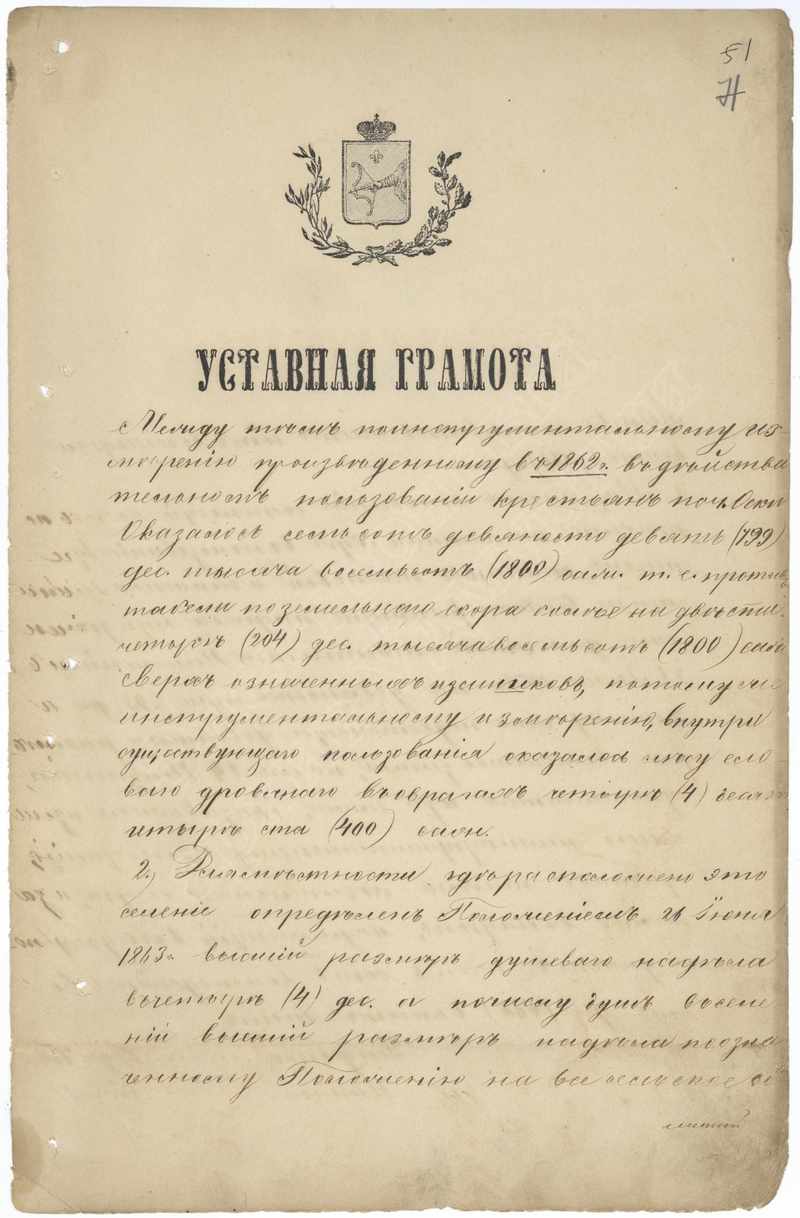 51
Н
УСТАВНАЯ ГРАМОТА
Между тѣмъ поинструментальному из-
мѣренію произведенному въ 1862 г. въдѣйстви
тельномъ пользованіи крестьянъ
Оказалось семьсотъ девяносто девять (799)
дес. тысяча восемьсотъ (1800) саж. т. е. противъ
на двѣсти
четыре (204) дес. тысяча восемьсотъ (1800) саж.
Сверхъ означенныхъ излишковъ, потомуже
инструментальному измѣренію, внутри
существующаго пользованія оказалось лѣсу
дровянаго въоврагахъ четыре (4) десят.
четыреста (400) саж.
2.) Для мѣстности гдѣ расположено это
селеніе опредѣленъ Положеніемъ 26 Іюня
1863 г. высшій размѣръ душеваго надѣла
вчетыре (4) дес. а почислу душъ вселе
ніи высшій размѣръ надѣла поозна
ченному Положенію на все сельское об